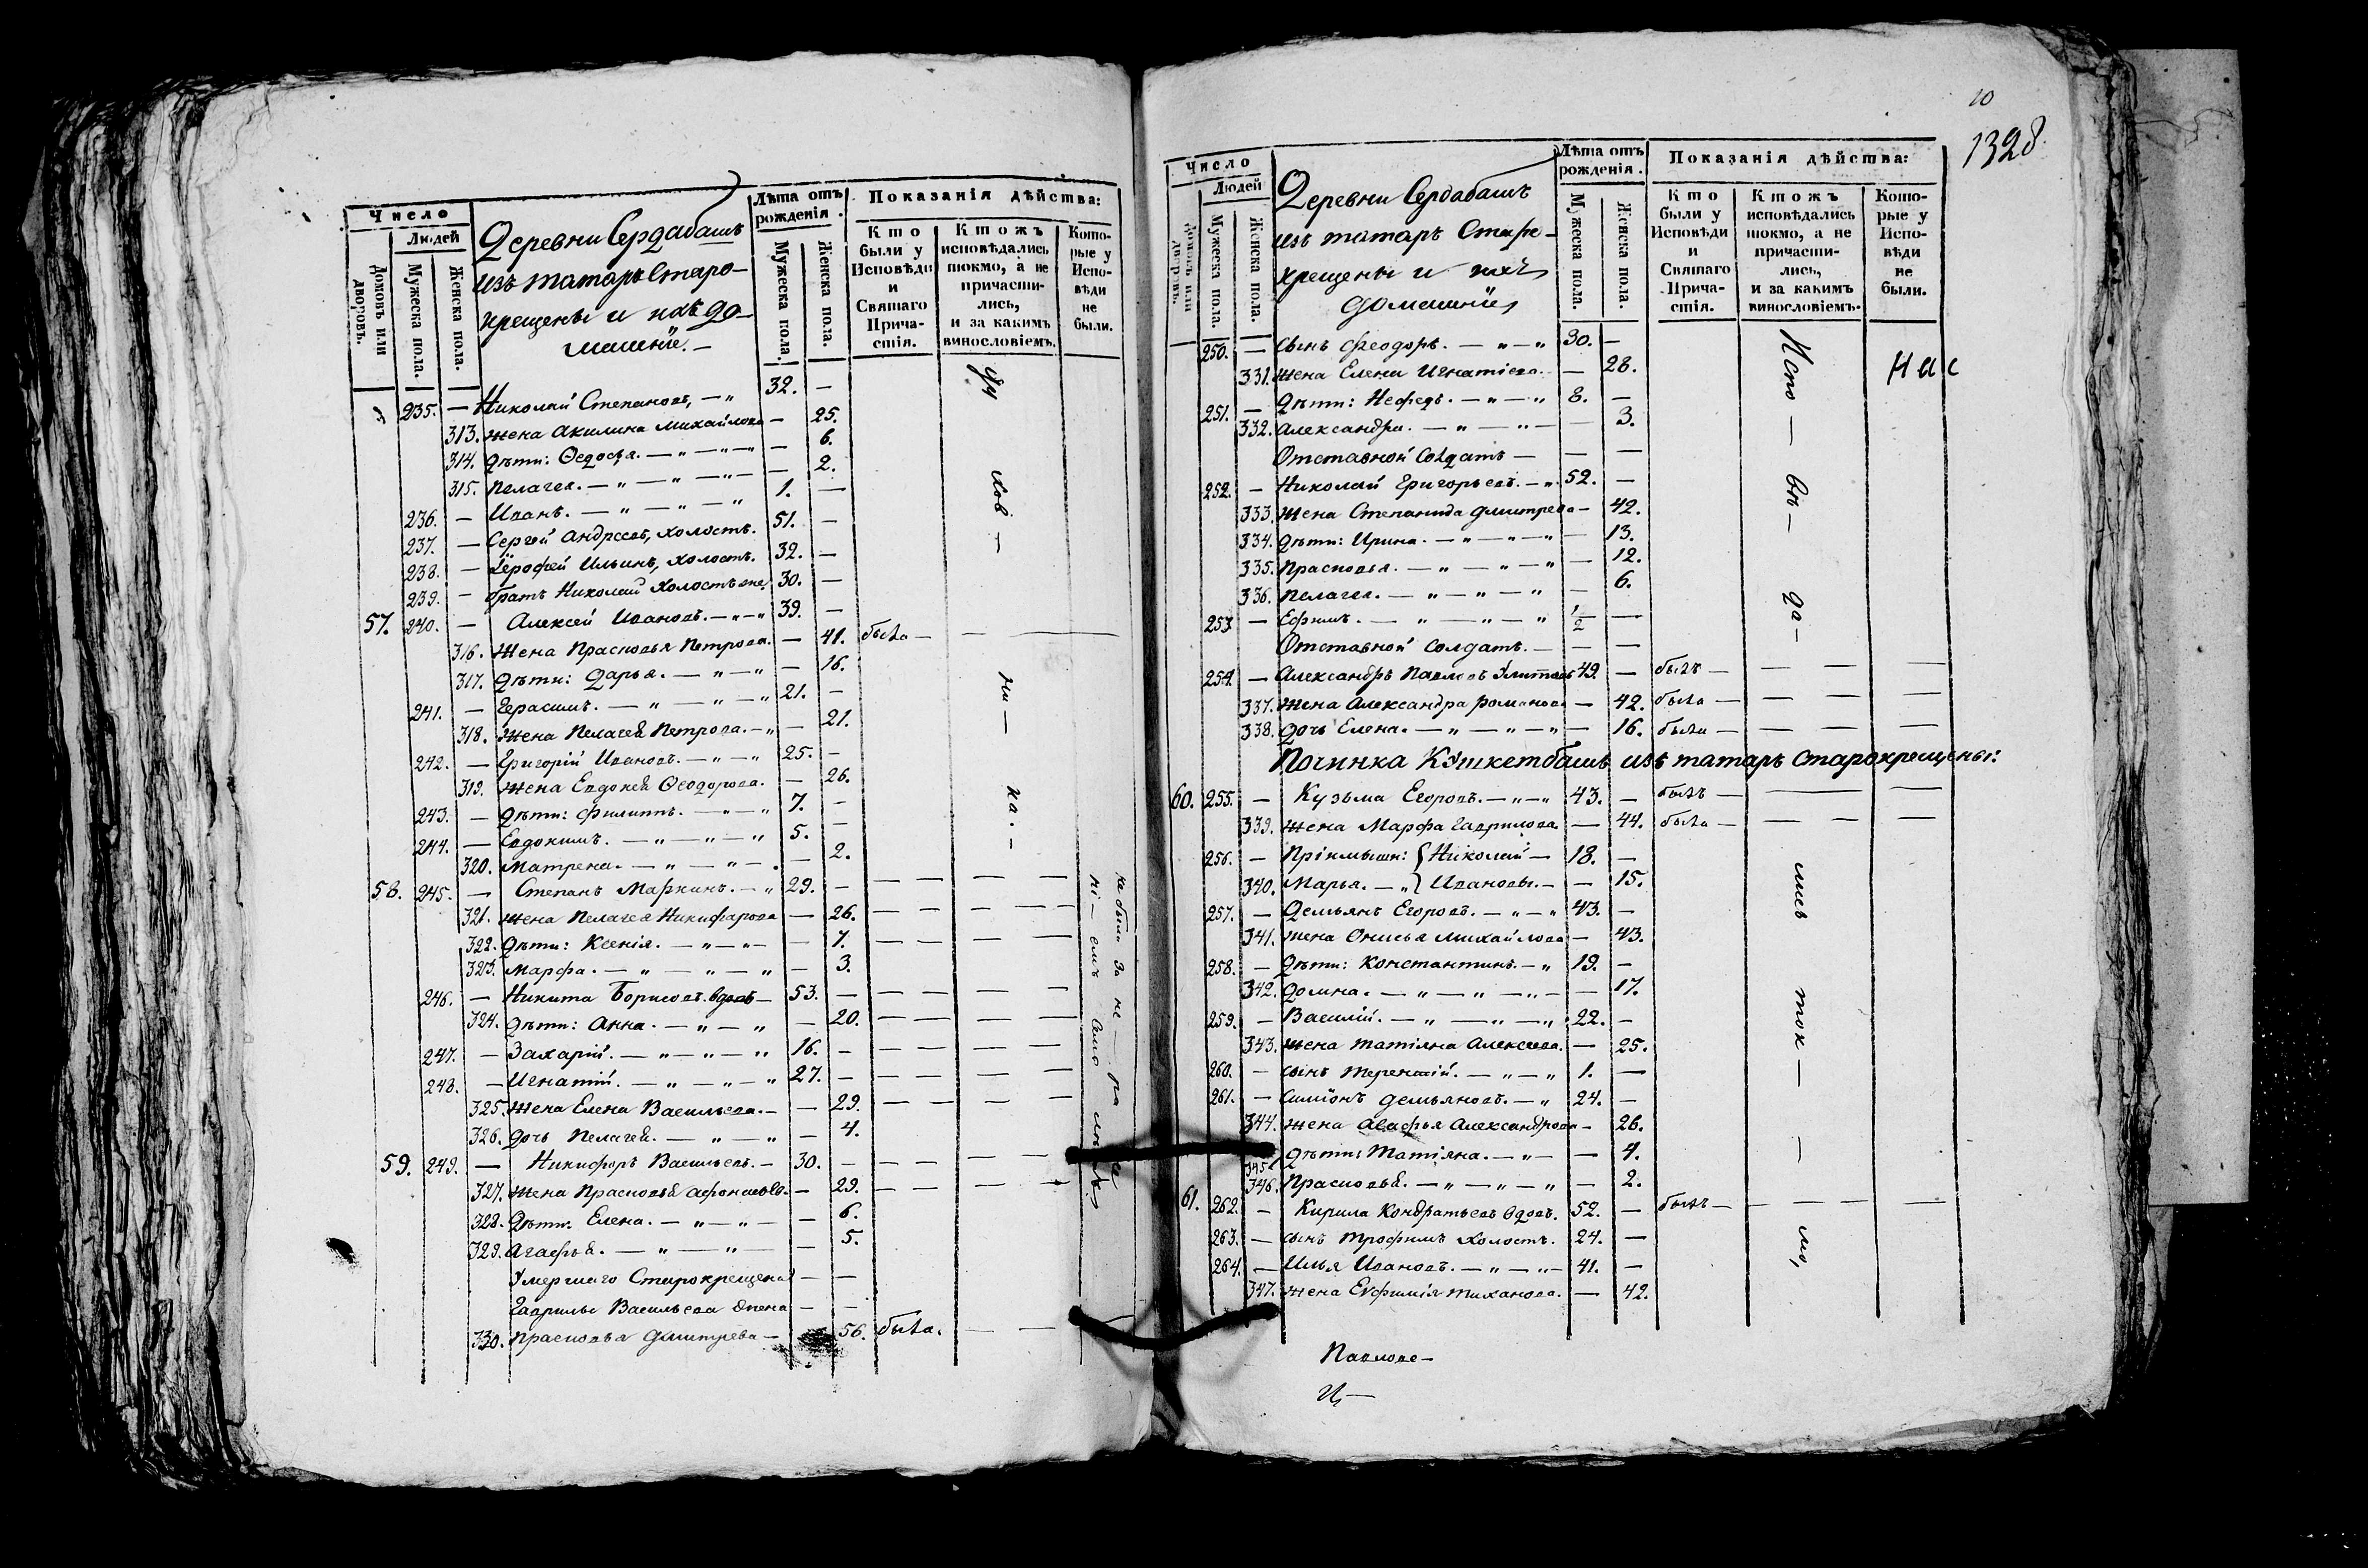 Число
Людей
Домовъ или дворовъ.
Мужеска пола.
Женска пола.
Деревни Сердабашъ
изъ татаръ Старо-
крещены и ихъ до-
машніе. —
Лѣта отъ рожденія.
Мужеска пола.
Женска пола.
Показанія дѣйства:
Кто были у Исповѣди и Святаго Прича-стія.
Ктожъ исповѣдались токмо, а не причасти-лись, и за какимъ винословіемъ.
Кото-рые у Испо-вѣди не были.
235. — Николай Степановъ, — „ 32. —
313. жена Акилина Михайлова — 25.
314. дѣти: Ѳедосья. — „ — „ — „ — 6.
315. Пелагея. — „ — „ — „ — 2.
236. — Иванъ. — „ — „ — „ 1. —
237. — Сергей Андреевъ, холостъ. 51. —
238. — Ерофей Ильинъ, холостъ. 32. —
239. — братъ Николай холостъ же, 30. —
57. 240. — Алексей Ивановъ. — „ — „ 39. —
316. Жена Прасковья Петрова. — 41. была —
317. дѣти: Дарья. — „ — „ — 16.
241. — Герасимъ. — „ — „ — „ 21. —
318. жена Пелагея Петрова. — „ — 21.
242. — Григорій Ивановъ. — „ — „ 25. —
319. жена Евдокея Ѳеодорова. — 26.
243. — дѣти: Филиппъ. — „ — „ 7. —
244. — Евдокимъ. — „ — „ — „ 5. —
320. Матрена. — „ — „ — — 2.
58. 245. — Степанъ Маркинъ. — „ 29. —
321. жена Пелагея Никифарова — 26.
322. дѣти: Ксенія. — „ — „ — — 7.
323. Марфа. — „ — „ — „ — 3.
246. — Никита Борисовъ. вдовъ — 53. —
324. дѣти: Анна. — „ — „ — 20.
247. — Захарій. — „ — „ — „ 16. —
248. — Игнатій. — „ — „ — „ 27. —
325. жена Елена Васильева. — — 29.
326. дочь Пелагея. — „ — „ — 4.
59. 249. — Никифоръ Васильевъ. — 30. —
327. жена Прасковья — 29.
328. дѣти: Елена. — „ — „ — — 6.
329. Агафья. — „ — „ — — 5.
Умершаго Старокрещена — —
Гаврилы Васильева жена — —
330. Прасковья Дмитрева — 56. была.
ни —
ка. —
не были за не — ра
10
1328
Число
Людей
Домовъ или дворовъ.
Мужеска пола.
Женска пола.
Деревни Сердабашъ
изъ татаръ Старо-
крещены и ихъ
домашніе,
Лѣта отъ рожденія.
Мужеска пола.
Женска пола.
Показанія дѣйства:
Кто были у Исповѣди и Святаго Прича-стія.
Ктожъ исповѣдались токмо, а не причасти-лись, и за какимъ винословіемъ.
Кото-рые у Испо-вѣди не были.
250. — Сынъ Феодоръ. — „ — „ 30. —
331. жена Елена Игнатіева. — — 28.
251. — дѣти: Нефедъ. — „ — „ 8. —
332. Александра. — „ — „ — — 3.
Отставной Солдатъ — — —
252. — Николай Григорьевъ. — „ 52. —
333. жена Степанида Дмитрева — 42.
334. дѣти: Ирина. — „ — „ — „ — 13.
335. Прасковья. — „ — „ — „ — 12.
336. Пелагея. — „ — „ — „ — 6.
253. — Ефимъ. — „ — „ — „ 1/2 —
Отставной солдатъ. — — —
254. — Александръ Павловъ 49. — былъ —
337. жена Александра Романова — 42. была —
338. дочь Елена. — „ — „ — „ — 16. была —
Починка Кушкетбашъ изъ татаръ старокрещены:
60. 255. — Кузьма Егоровъ. — „ — „ 43. — былъ —
339. жена Марфа Гаврилова. — 44. была —
256. — Пріимыши: { Николай — 18. —
340. Марья. — „ } Ивановы. — — 15.
257. — Демьянъ Егоровъ. — „ — „ 43. —
341. жена Онисья Михайлова — 43.
258. — дѣти: Константинъ. — „ 19. —
342. Домна. — „ — „ — „ — — 17.
259. — Василій. — „ — „ — „ 22. —
343. жена Татіяна Алексеева. — 25.
260. — сынъ Терентій. — „ — „ 1. —
261. — Симіонъ Демьяновъ. — „ 24. —
344. жена Агафья Александрова — 26.
345. дѣти: Татіяна. — „ — — 4.
346. Прасковья. — „ — „ — „ — 2.
61. 262. — Кирила Кондратьевъ вдовъ. 52. — былъ —
263. — сынъ Трофимъ холостъ. 24. —
264. — Илья Ивановъ. — „ — „ — 41. —
347. жена Евфимія Тиханова. — 42.
Испо —
вѣ —
да —
лись
ток —
мо,
Павлове —